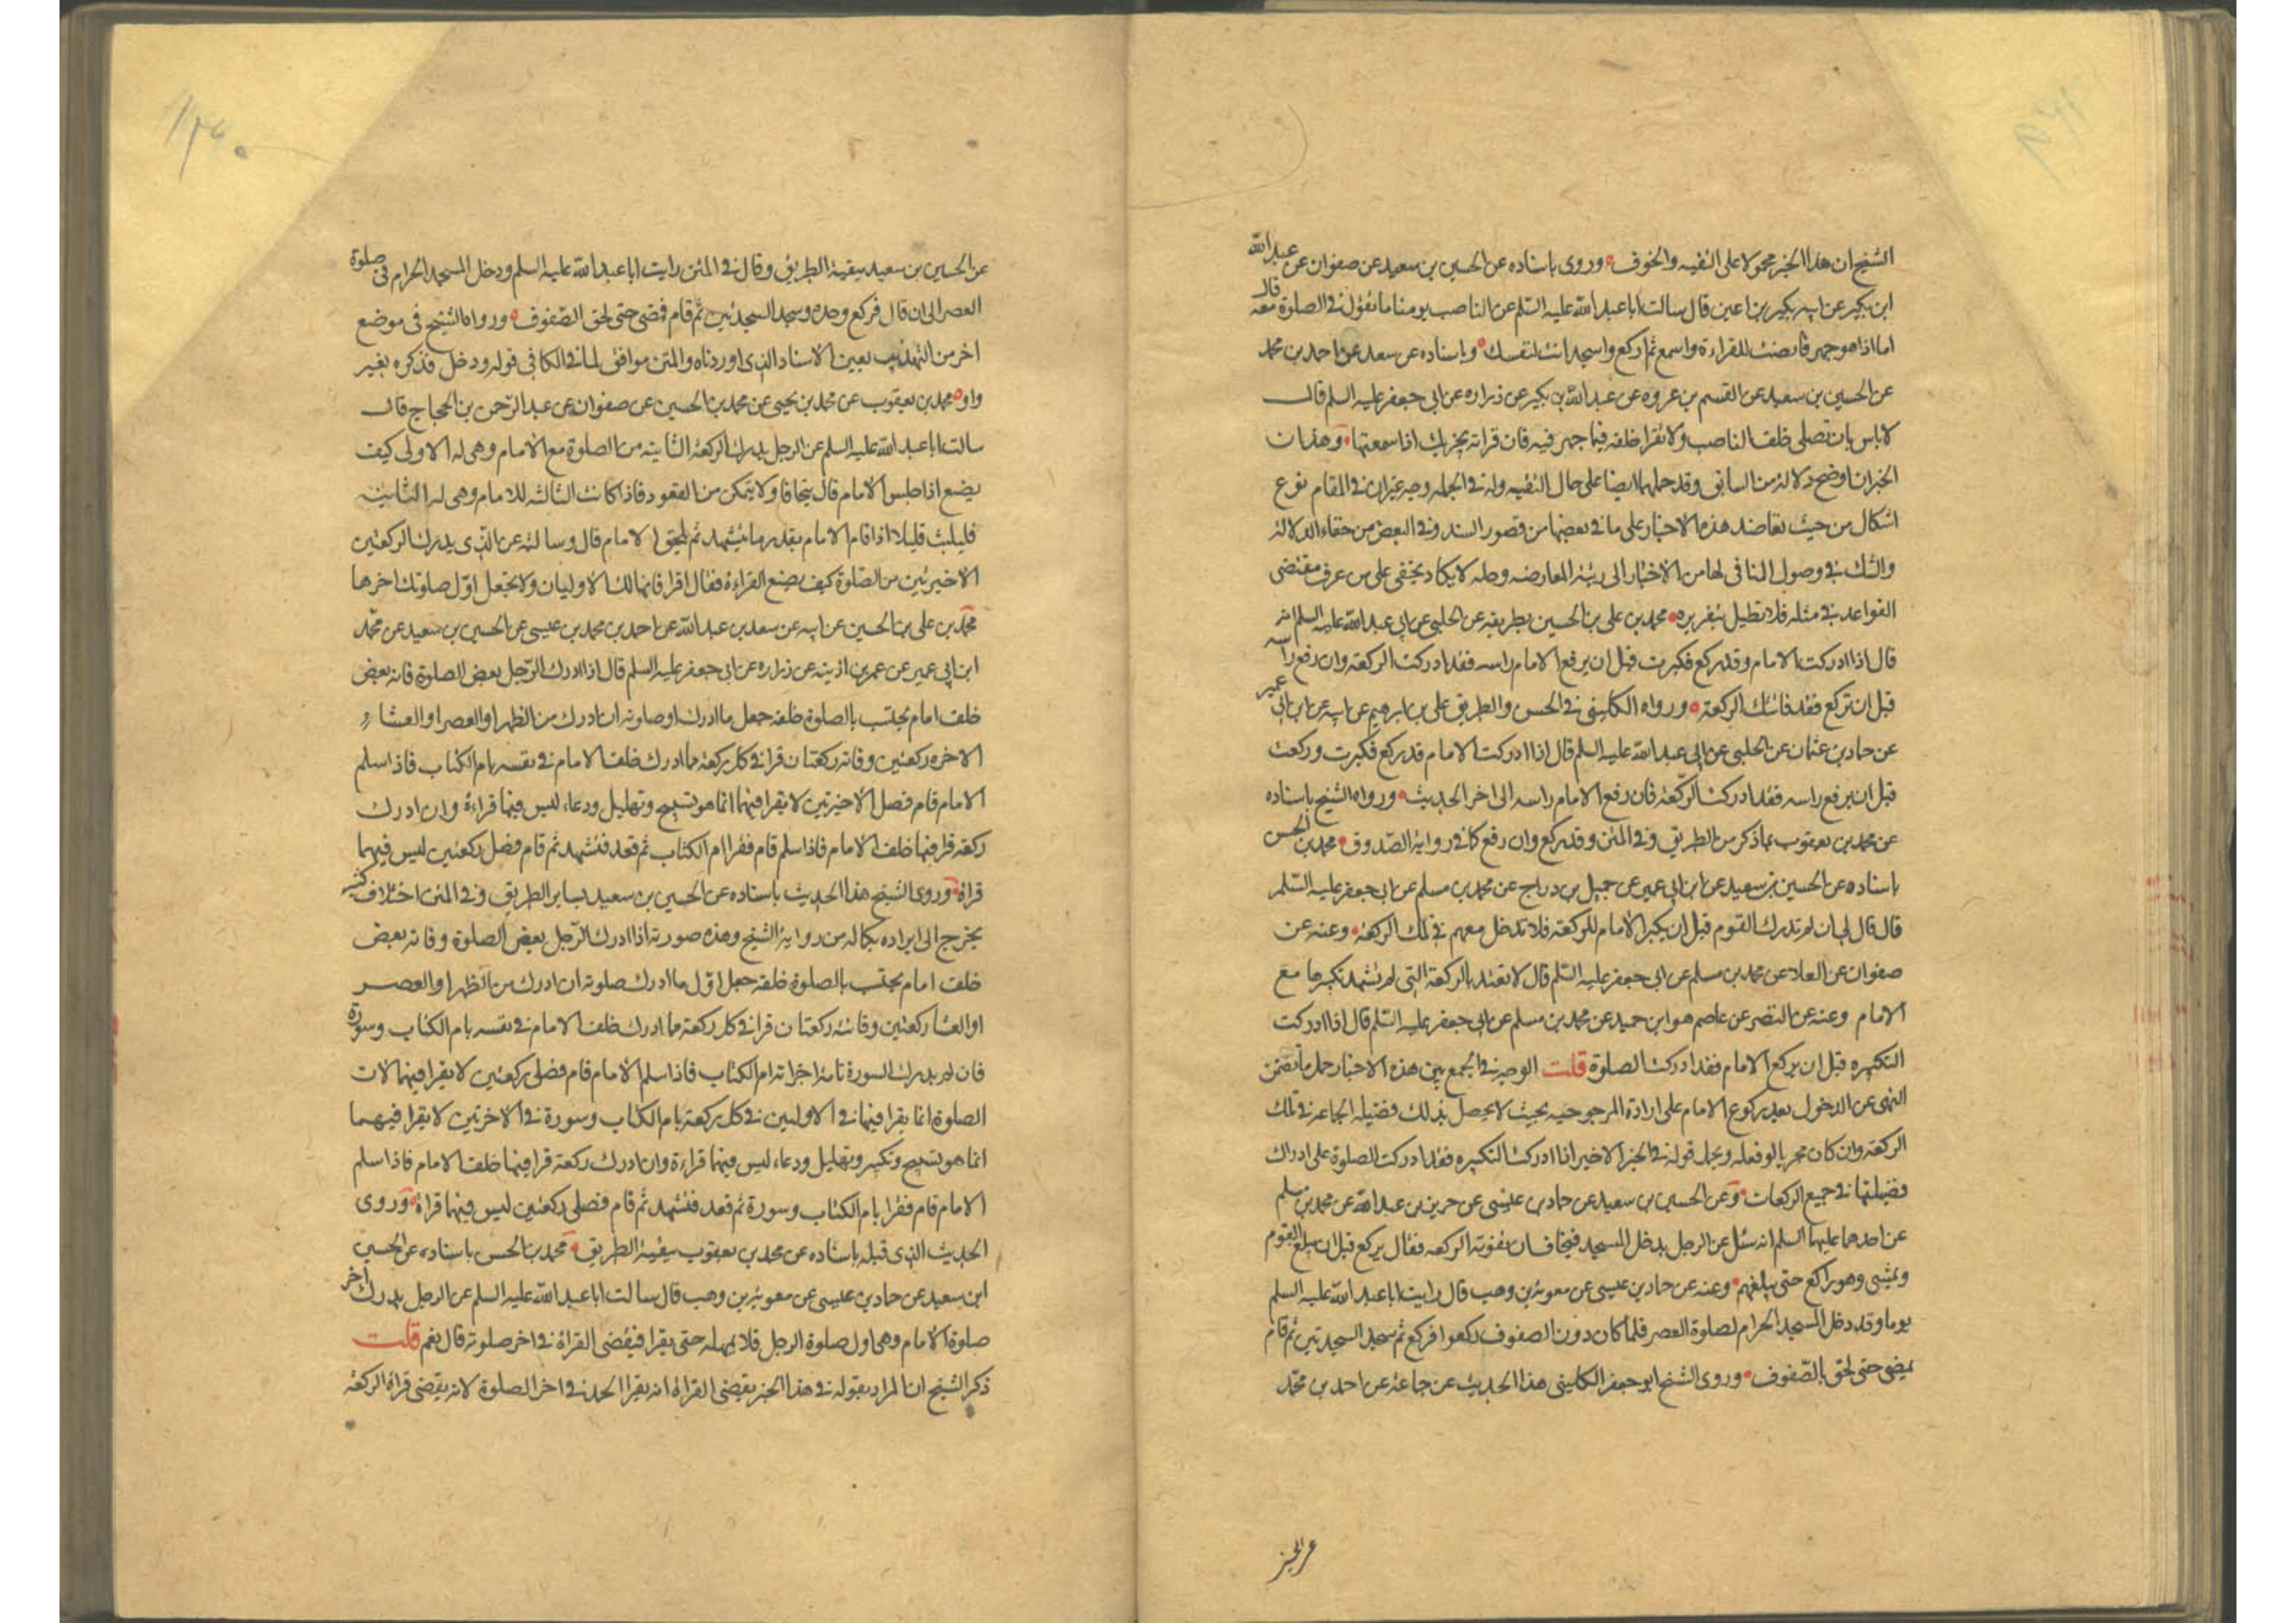 الشيخ ان هذا الخبر محمولا على التقيه والخوف وروى باسناده عن الحسين بن سعيد عن صفوان عن عبد الله
ابن بكير عن ابيه بكير بن اعين قال سالت ابا عبد الله عليه السلم عن الناصب يومنا ما تقول في الصلوة معه قال
اما اذا هو جهر فانصت للقراءة واسمع ثم اركع واسجد انت لنفسك وباسناده عن سعد عن احمد بن محمد
عن الحسين بن سعيد عن القسم بن عروه عن عبد الله بن بكير عن زراره عن ابى جعفر عليه السلم قال
لا باس بان تصلى خلف الناصب ولا تقرا خلفه فيما جهر فيه فان قراته يجزيك اذا سمعتها وهذان
الخبران اوضح دلالة من السابق وقد حملهما ايضا على حال التقيه وله في الجمله وجه غير ان في المقام نوع
اشكال من حيث تعاضد هذه الاخبار على ما في بعضها من قصور السند وفي البعض من خفاء الدلالة
والشك في وصول المنافى لها من الاخبار الى رتبة المعارضه وحله لا يكاد يخفى على من عرف مقتضى
القواعد في مثله فلا نطيل بتقريره محمد بن على بن الحسين بطريقه عن الحلبى عن ابى عبد الله عليه السلم انه
قال اذا ادركت الامام وقد ركع فكبرت قبل ان يرفع الامام راسه فقد ادركت الركعة وان رفع راسه
قبل ان تركع فقد فاتتك الركعة ورواه الكلينى في الحسن والطريق على بن ابرهيم عن ابيه عن ابن ابى عمير
عن حماد بن عثمان عن الحلبى عن ابى عبد الله عليه السلم قال اذا ادركت الامام قد ركع فكبرت وركعت
قبل ان يرفع راسه فقد ادركت الركعة فان رفع الامام راسه الى اخر الحديث ورواه الشيخ باسناده
عن محمد بن يعقوب بما ذكر من الطريق وفي المتن وقد ركع وان رفع كما في رواية الصدوق محمد بن الحسن
باسناده عن الحسين بن سعيد عن ابن ابى عمير عن جميل بن دراج عن محمد بن مسلم عن ابى جعفر عليه السلم
قال قال لى ان لم تدرك القوم قبل ان يكبر الامام للركعة فلا تدخل معهم في تلك الركعة وعنه عن
صفوان عن العلا عن محمد بن مسلم عن ابى جعفر عليه السلم قال لا تعتد بالركعة التى لم تشهد تكبيرها مع
الامام وعنه عن النضر عن عاصم هو ابن حميد عن محمد بن مسلم عن ابى جعفر عليه السلم قال اذا ادركت
التكبيره قبل ان يركع الامام فقد ادركت الصلوة قلت الوجه في الجمع بين هذه الاخبار حمل ما تضمن
النهى عن الدخول بعد ركوع الامام على ارادة المرجوحيه بحيث لا يحصل بذلك فضيلة الجماعه في تلك
الركعة وان كان مجزيا لو فعله ويحمل قوله في الخبر الاخير اذا ادركت التكبيره فقد ادركت الصلوة على ادراك
فضيلتها في جميع الركعات وعن الحسين بن سعيد عن حماد بن عيسى عن حريز بن عبد الله عن محمد بن مسلم
عن احدهما عليهما السلم انه سئل عن الرجل يدخل المسجد فيخاف ان تفوته الركعه فقال يركع قبل ان يبلغ القوم
ويمشى وهو راكع حتى يبلغهم وعنه عن حماد بن عيسى عن معوية بن وهب قال رايت ابا عبد الله عليه السلم
يوما وقد دخل المسجد الحرام لصلوة العصر فلما كان دون الصفوف ركعوا فركع ثم سجد السجدتين ثم قام
يمضى حتى لحق بالصفوف وروى الشيخ ابو جعفر الكلينى هذا الحديث عن جماعة عن احمد بن محمد
عن الحسين
عن الحسين بن سعيد ببقية الطريق وقال في المتن رايت ابا عبد الله عليه السلم ودخل المسجد الحرام فى صلوة
العصر الى ان قال فركع وحده وسجد السجدتين ثم قام فمضى حتى لحق الصفوف ورواه الشيخ فى موضع
اخر من التهذيب بعين الاسناد الذى اوردناه والمتن موافق لما في الكافى فى قوله ودخل فذكره بغير
واو محمد بن يعقوب عن محمد بن يحيى عن محمد بن الحسين عن صفوان عن عبد الرحمن بن الحجاج قال
سالت ابا عبد الله عليه السلم عن الرجل يدرك الركعة الثانية من الصلوة مع الامام وهى له الاولى كيف
يصنع اذا جلس الامام قال يتجافا ولا يتمكن من القعود فاذا كانت الثالثه للامام وهى له الثانية
فليلبث قليلا اذا قام الامام بقدر ما يتشهد ثم يلحق الامام قال وسالته عن الذى يدرك الركعتين
الاخيرتين من الصلوة كيف يصنع القراءة فقال اقرا فيهما فانهما لك الاوليان ولا تجعل اول صلوتك اخرها
محمد بن على بن الحسين عن ابيه عن سعد بن عبد الله عن احمد بن محمد بن عيسى عن الحسين بن سعيد عن محمد
ابن ابى عمير عن عمر بن اذينه عن زراره عن ابى جعفر عليه السلم قال اذا ادرك الرجل بعض الصلوة فاته بعض
خلف امام يحتسب بالصلوة خلفه جعل ما ادرك اول صلوته ان ادرك من الظهر او العصر او العشاء
الاخره ركعتين وفاته ركعتان قرا في كل ركعة مما ادرك خلف الامام في نفسه بام الكتاب فاذا سلم
الامام قام فصلى الاخيرتين لا يقرا فيهما انما هو تسبيح وتهليل ودعاء ليس فيهما قراءة وان ادرك
ركعة قرا فيها خلف الامام فاذا سلم قام فقرا ام الكتاب ثم قعد فتشهد ثم قام فصلى ركعتين ليس فيهما
قراة وروى الشيخ هذا الحديث باسناده عن الحسين بن سعيد بساير الطريق وفي المتن اختلاف كثير
يحوج الى ايراده بكماله من رواية الشيخ وهذه صورته اذا ادرك الرجل بعض الصلوة وفاته بعض
خلف امام يحتسب بالصلوة خلفه جعل اول ما ادرك صلوته ان ادرك من الظهر او العصر
او العشا ركعتين وفاتته ركعتان قرا في كل ركعة مما ادرك خلف الامام في نفسه بام الكتاب وسورة
فان لم يدرك السورة تامة اجزاته ام الكتاب فاذا سلم الامام قام فصلى ركعتين لا يقرا فيهما لان
الصلوة انما يقرا فيها في الاوليين في كل ركعة بام الكتاب وسورة في الاخرتين لا يقرا فيهما
انما هو تسبيح وتكبير وتهليل ودعاء ليس فيهما قراءة وان ادرك ركعة قرا فيها خلف الامام فاذا سلم
الامام قام فقرا بام الكتاب وسورة ثم قعد فتشهد ثم قام فصلى ركعتين ليس فيهما قراة وروى
الحديث الذى قبله باسناده عن محمد بن يعقوب ببقية الطريق محمد بن الحسن باسناده عن الحسين
ابن سعيد عن حماد بن عيسى عن معوية بن وهب قال سالت ابا عبد الله عليه السلم عن الرجل يدرك اخر
صلوة الامام وهى اول صلوة الرجل فلا يمهله حتى يقرا فيقضى القراة في اخر صلوته قال نعم قلت
ذكر الشيخ ان المراد بقوله في هذا الخبر يقضى القراة انه يقرا الحمد في اخر الصلوة لا انه يقضى قراة الركعة